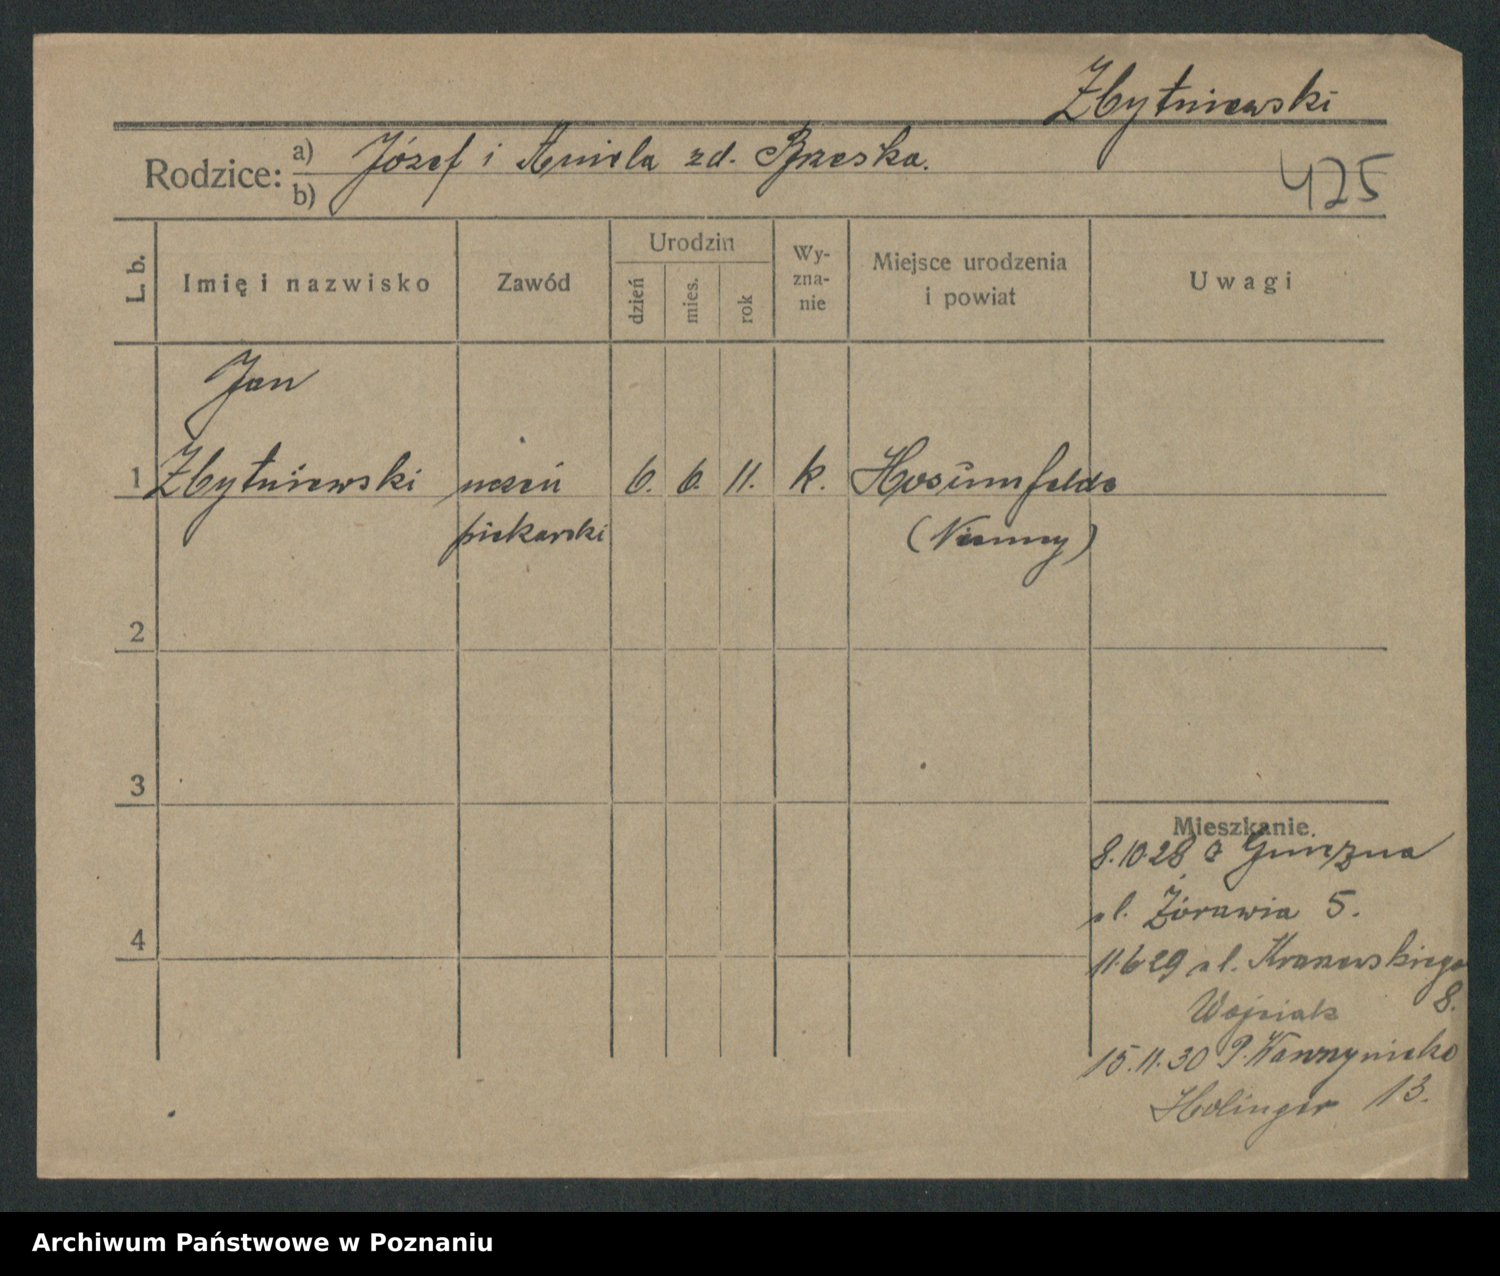 Zbytniewski
Rodzice: a) Józef i Aniela zd. Brzeska.
b)
425
L. b.
Imię i nazwisko
Zawód
Urodzin
dzień
mies.
rok
Wy-
zna-
nie
Miejsce urodzenia
i powiat
Uwagi
Jan
1 Zbytniewski uczeń 6. 6. 11. k.
piekarski (Niemcy)
2
3
Mieszkanie
8.10.28 z Gniezna
ul. Żórawia 5.
4
11.6.29 ul. Kraszewskiego
Wojciak 8.
15.11.30 P. Wawrzyniaka
Holinger 13.
Archiwum Państwowe w Poznaniu